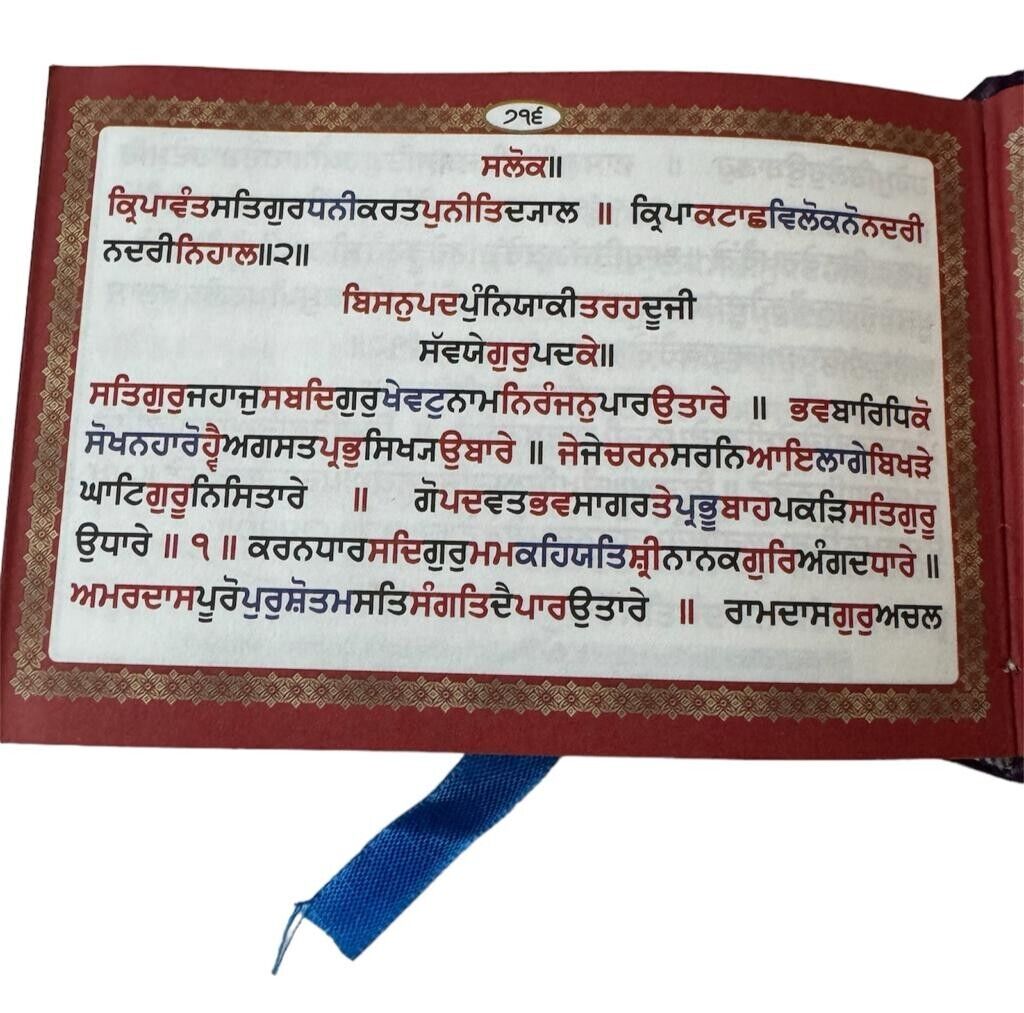 ੭੧੬
ਸਲੋਕ॥
ਕ੍ਰਿਪਾਵੰਤਸਤਿਗੁਰਧਨੀਕਰਤਪੁਨੀਤਿਦ੍ਯਾਲ ॥ ਕ੍ਰਿਪਾਕਟਾਛਵਿਲੋਕਨੋਨਦਰੀ
ਨਦਰੀਨਿਹਾਲ॥੨॥
ਬਿਸਨੁਪਦਪੁੰਨਿਯਾਕੀਤਰਹਦੂਜੀ
ਸੱਵਯੇਗੁਰੁਪਦਕੇ॥
ਸਤਿਗੁਰੁਜਹਾਜੁਸਬਦਿਗੁਰੁਖੇਵਟੁਨਾਮਨਿਰੰਜਨੁਪਾਰਉਤਾਰੇ ॥ ਭਵਬਾਰਿਧਿਕੋ
ਸੋਖਨਹਾਰੋਹ੍ਵੈਅਗਸਤਪ੍ਰਭੁਸਿਖ੍ਯਉਬਾਰੇ ॥ ਜੇਜੇਚਰਨਸਰਨਿਆਇਲਾਗੇਬਿਖੜੇ
ਘਾਟਿਗੁਰੂਨਿਸਿਤਾਰੇ ॥ ਗੋਪਦਵਤਭਵਸਾਗਰਤੇਪ੍ਰਭੂਬਾਹਪਕੜਿਸਤਿਗੁਰੂ
ਉਧਾਰੇ ॥ ੧ ॥ ਕਰਨਧਾਰਸਦਿਗੁਰੁਮਮਕਹਿਯਤਿਸ਼੍ਰੀਨਾਨਕਗੁਰਿਅੰਗਦਧਾਰੇ ॥
ਅਮਰਦਾਸਪੂਰੋਪੁਰੁਸ਼ੋਤਮਸਤਿਸੰਗਤਿਦੈਪਾਰਉਤਾਰੇ ॥ ਰਾਮਦਾਸਗੁਰੁਅਚਲ